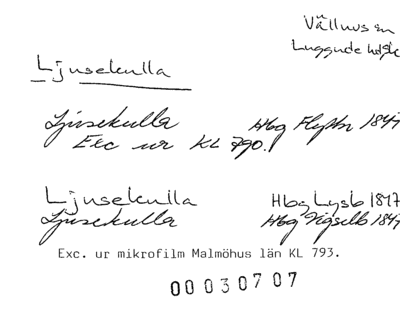 Välluvs sn
Luggude hd
Ljusekulla
Ljusekulla Hbg Flyttn 1847
Exc ur KL 790.
Ljusekulla Hbg Lysb 1847
Ljusekulla Hbg Vigselb 1847
Exc. ur mikrofilm Malmöhus län KL 793.
00030707